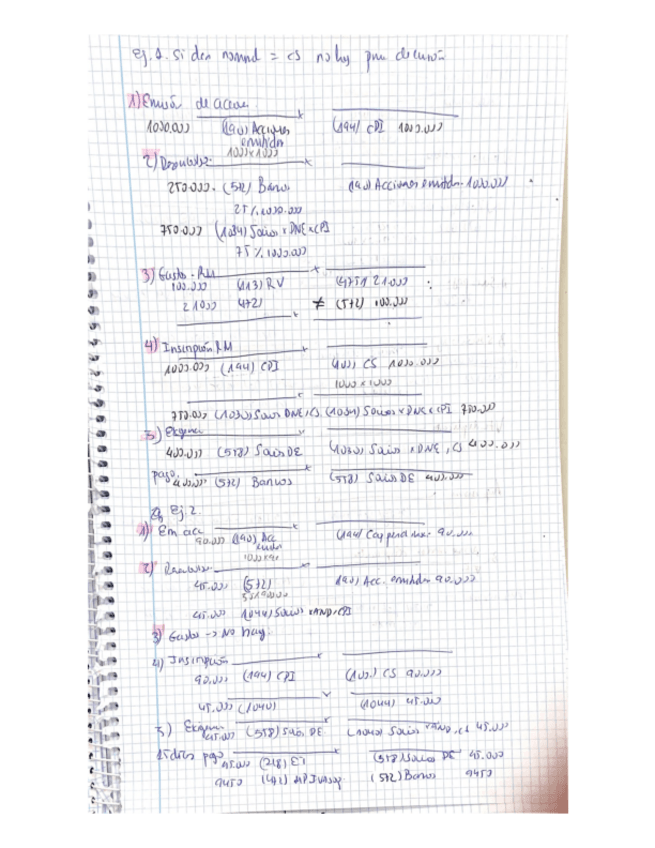 Ej. 1. Si den nomnd = CS no hay
1) Emisión de accion.
1000.000 (190) Acciones emitidas (194) CPI 1000.000
1000x1000
2)
250.000. (572) Banco (190) Acciones emitidas. 1000.000
25%1000.000
750.000 (1034) Socios x DNE x CPI
75%1000.000
3) Gastos - RM
100.000 (113) RV (4751) 21.000
21.000 (472) ≠ (572) 100.000
4) Inscripción RM
1000.000 (194) CPI (100) CS 1000.000
1000x1000
750.000 (1030) Socios DNE, CS (1034) Socios x DNE x CPI 750.000
5) Exigencia
400.000 (558) Socios DE (1030) Socios x DNE, CS 400.000
pago, 400.000 (572) Bancos (558) Socios DE 400.000
Ej. 2.
1) Em acc
90.000 (190) Acc emitidas (194) Cap pend 90.000
2)
45.000 (572) (190) Acc. emitidas 90.000
45.000 (1044) Socios x AND, CPI
3) Gastos → No hay.
4) Inscripción
90.000 (194) CPI (100) CS 90.000
45.000 (1040) (1044) 45.000
5) Exigencia
45.000 (558) Socios DE (1040) Socios x AND, CS 45.000
15 días pago
45.000 (218) ET (558) Socios DE 45.000
9450 (471) HP IVA sop (572) Banco 9450